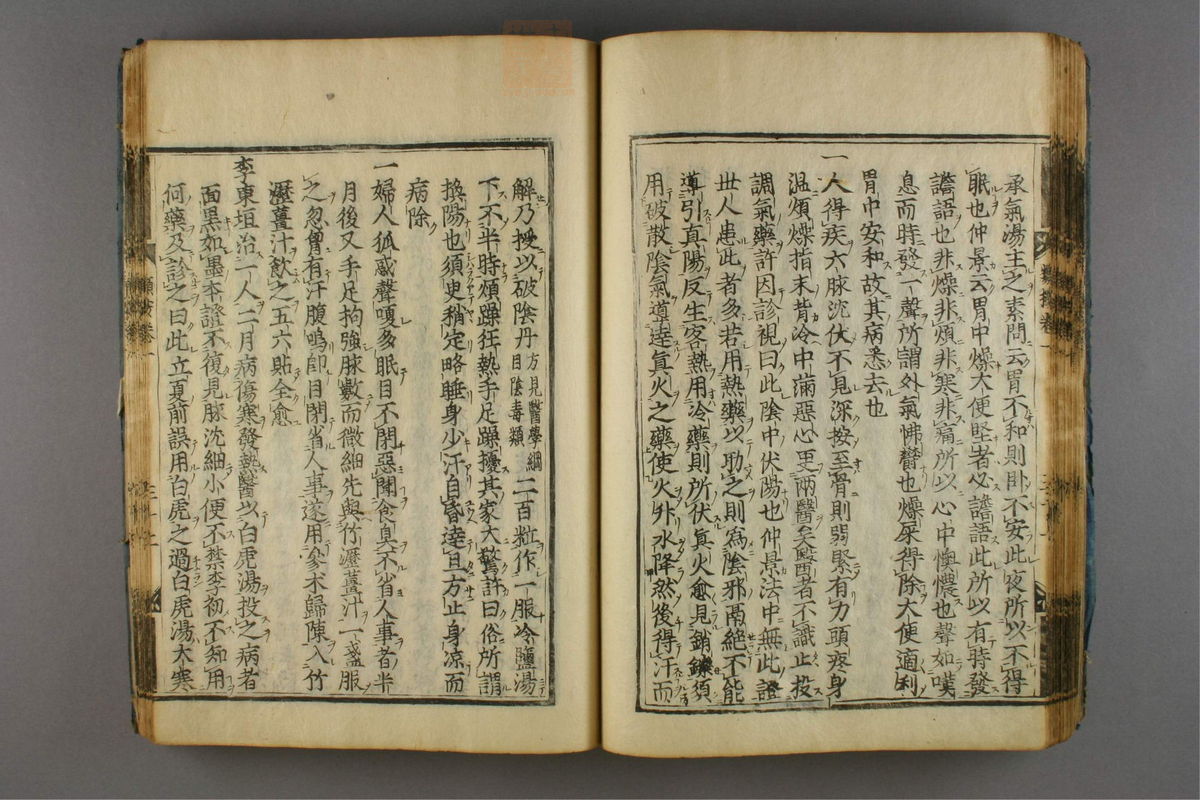 承氣湯主之素問云胃不和則卧不安此夜所以不得
眠也仲景云胃中燥大便堅者必譫語此所以有時發
譫語也非燥非煩非寒非痛所以心中懊憹也聲如嘆
息而時發一聲所謂外氣怫鬱也燥屎得除大便適利
胃中安和故其病悉去也
一人得疾六脉沈伏不見深按至骨則弱緊有力頭疼身
温煩燥指末皆冷中滿惡心更兩醫矣醫者不識止投
調氣藥許因診視曰此陰中伏陽也仲景法中無此證
世人患此者多若用熱藥以助之則為陰邪隔絶不能
導引真陽反生客熱用冷藥則所伏真火愈見銷鑠須
用破散陰氣導達真火之藥使火升水降然後得汗而
解乃授以破陰丹方見醫學綱目陰毒類二百粒作一服冷鹽湯
下不半時煩躁狂熱手足躁擾其家大驚許曰俗所謂
換陽也須臾稍定略睡身少汗自昏達旦方止身凉而
病除
一婦人狐惑聲嗄多眠目不閉惡聞食臭不省人事者半
月後又手足拘強脉數而微細先與竹瀝薑汁一盞服
之忽胷有汗腹鳴即目閉省人事遂用參朮歸陳入竹
瀝薑汁飲之五六貼全愈
李東垣治一人二月病傷寒發熱醫以白虎湯投之病者
面黑如墨本證不復見脉沈細小便不禁李初不知用
何藥及診之曰此立夏前誤用白虎之過白虎湯大寒